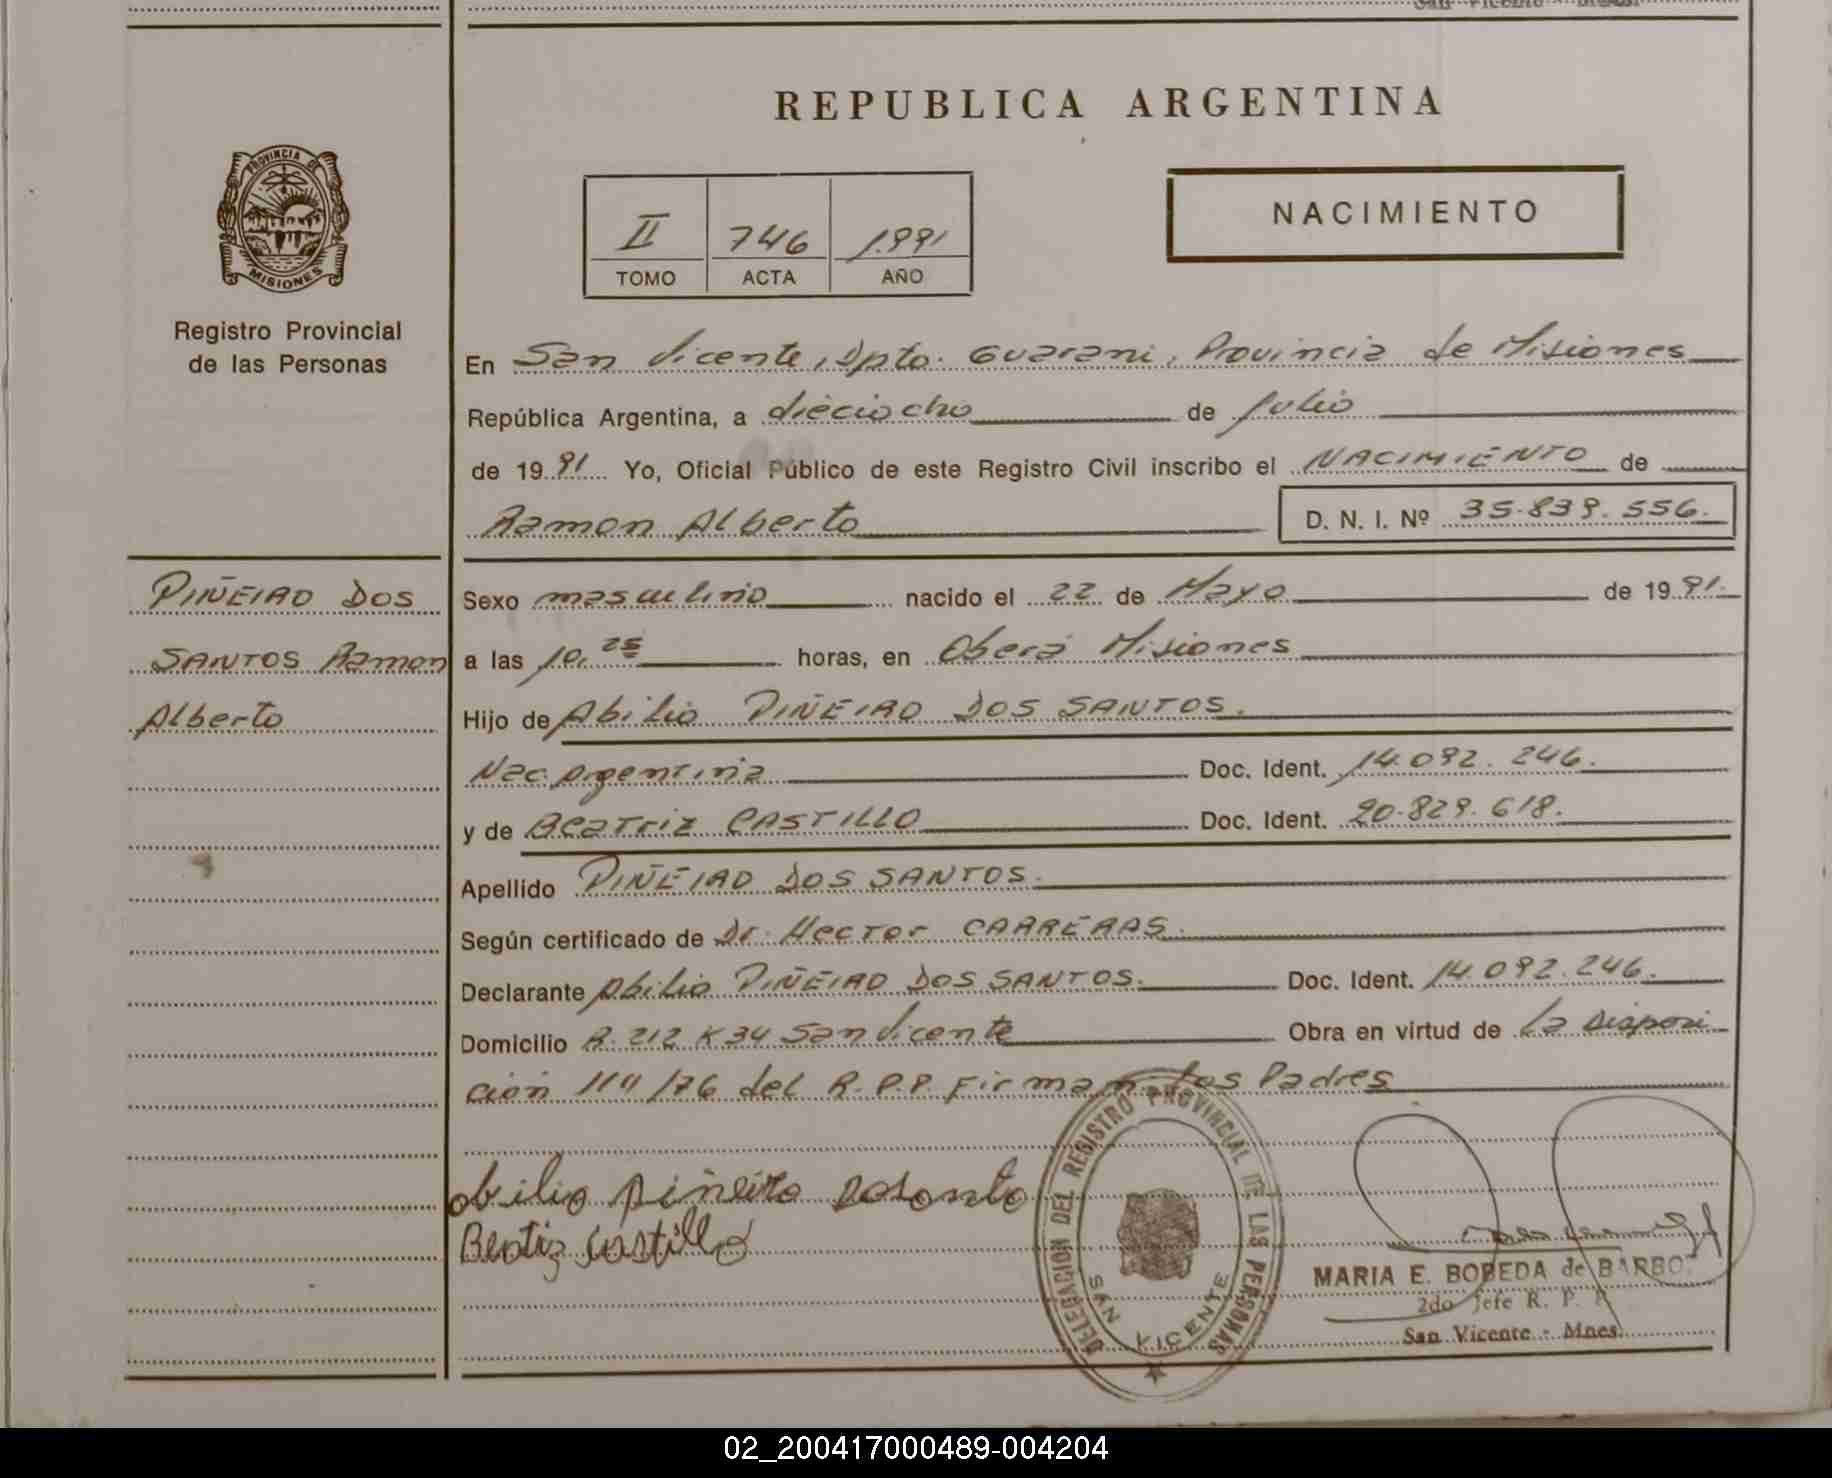 REPUBLICA ARGENTINA
PROVINCIA DE
MISIONES
Registro Provincial
de las Personas
II 746 1.991
TOMO ACTA AÑO
NACIMIENTO
En San Vicente, Dpto. Guarani, Provincia de Misiones
República Argentina, a dieciocho de Julio
de 1991 Yo, Oficial Público de este Registro Civil inscribo el NACIMIENTO de
Ramon Alberto D. N. I. Nº 35.839.556.
PIÑEIRO DOS
SANTOS Ramon
Alberto
Sexo masculino nacido el 22 de Mayo de 1991.
a las 10,25 horas, en Oberá Misiones
Hijo de Abilio PIÑEIRO DOS SANTOS.
Nac. Argentina Doc. Ident. 14.092.246.
y de Beatriz CASTILLO Doc. Ident. 20.829.618.
Apellido PIÑEIRO DOS SANTOS.
Según certificado de Dr. Hector CARRERAS.
Declarante Abilio PIÑEIRO DOS SANTOS. Doc. Ident. 14.092.246.
Domicilio R. 212 K 34 San Vicente Obra en virtud de la disposi
ción /76 del R.P.P. Firman los Padres
Abilio Piñeiro Dosonto
Beatiz Castillo
DELEGACION DEL REGISTRO PROVINCIAL DE LAS PERSONAS
SAN VICENTE
MARIA E. BOBEDA de BARBO
2do Jefe R. P. P.
San Vicente - Mnes.
02_200417000489-004204